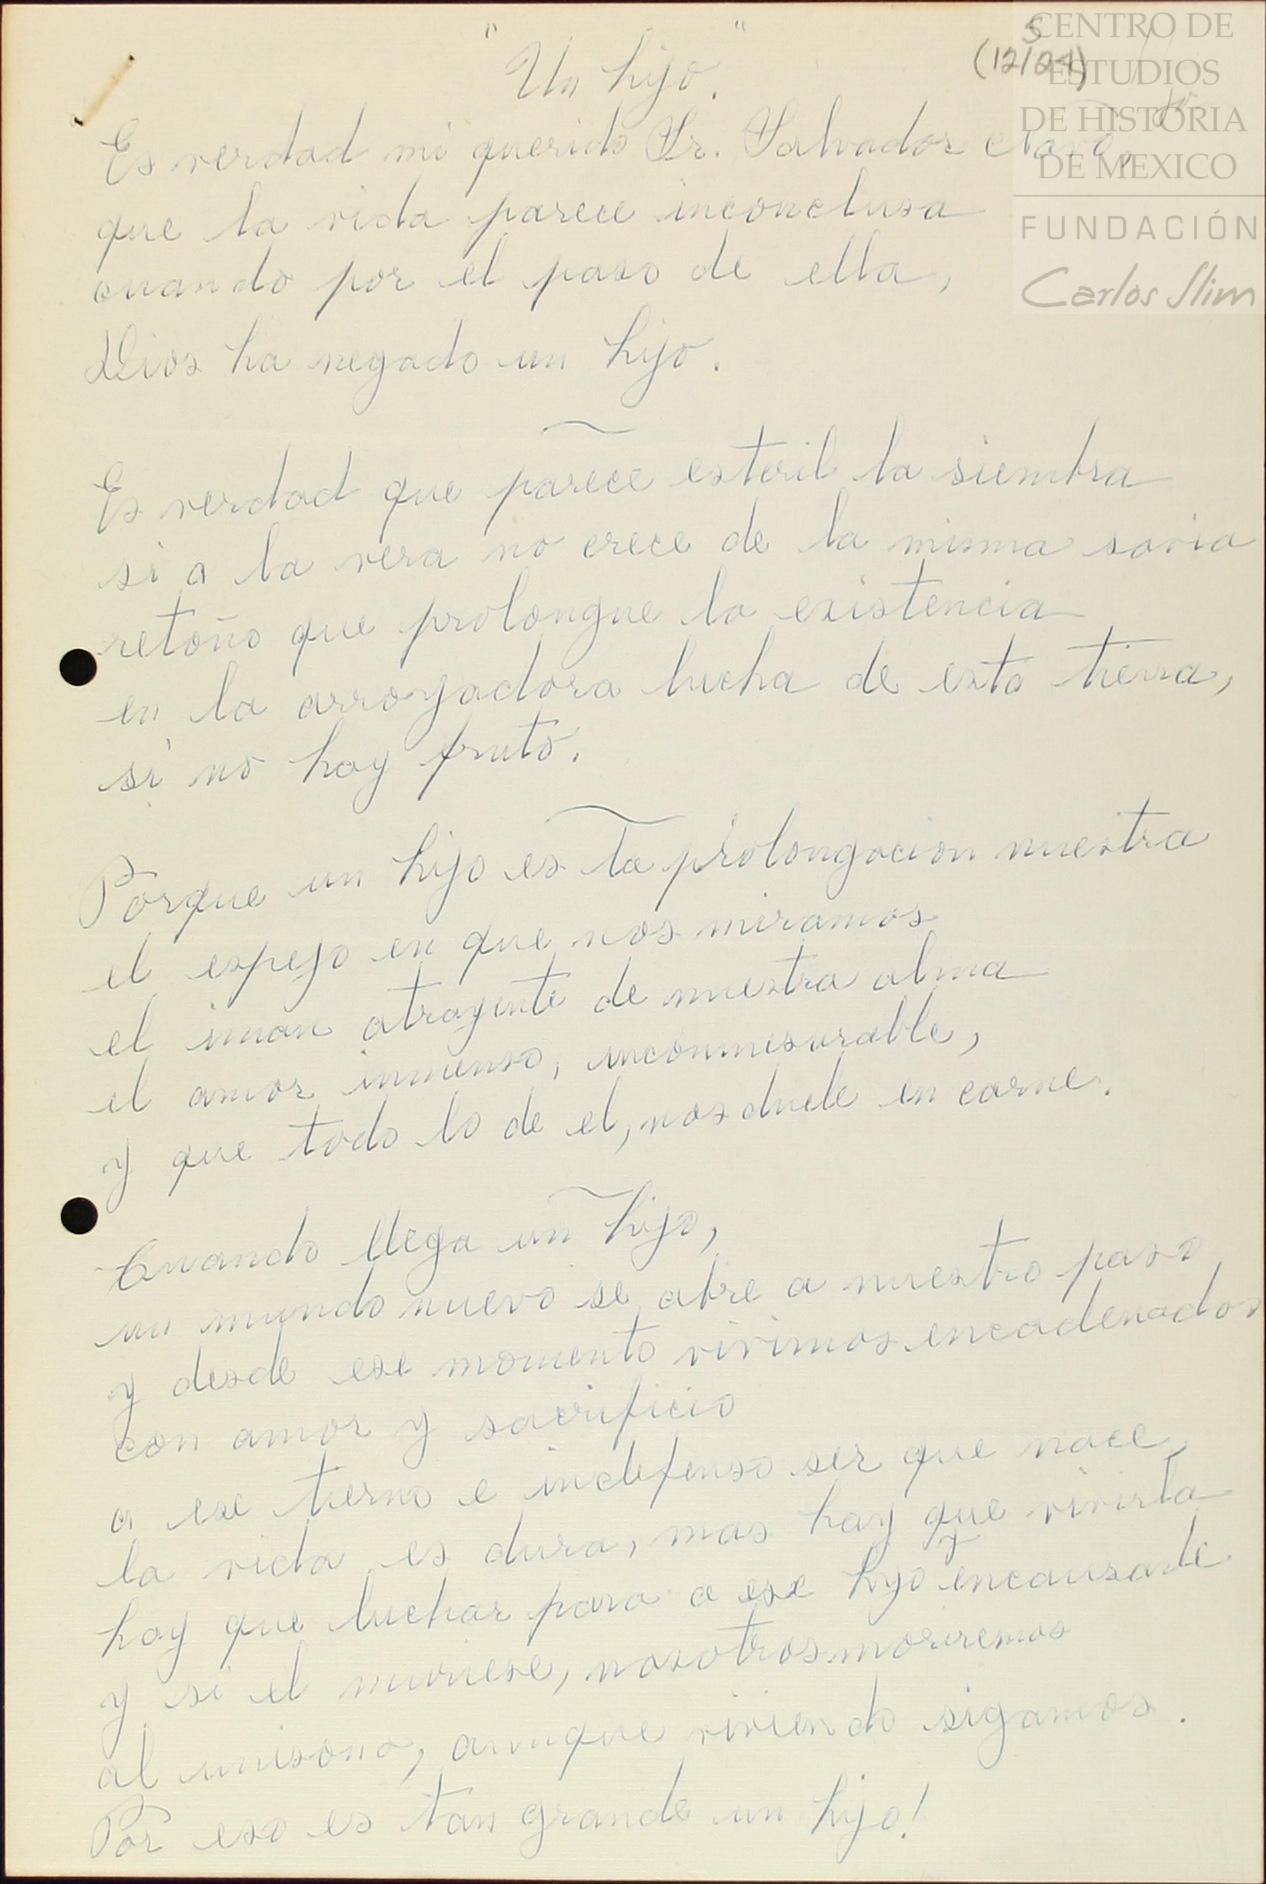 "Un hijo."
(12/24)
5
CENTRO DE
ESTUDIOS
DE HISTORIA
DE MEXICO
FUNDACIÓN
Carlos Slim
Es verdad mi querido Sr. Salvador
que la vida parece inconclusa
cuando por el paso de ella,
Dios ha negado un hijo.
Es verdad que parece esteril la siembra
si a la vera no crece de la misma savia
retoño que prolongue la existencia
en la arroyadora lucha de esta tierra,
si no hay fruto.
Porque un hijo es la prolongacion nuestra
el espejo en que nos miramos
el iman atrayente de nuestra alma
el amor inmenso, inconmesurable,
y que todo lo de el, nos duele en carne.
Cuando llega un hijo,
un mundo nuevo se abre a nuestro paso
y desde ese momento vivimos encadenados
con amor y sacrificio
a ese tierno e indefenso ser que nace,
la vida es dura, mas hay que vivirla
hay que luchar para a ese hijo y encausarle
y si el muriese, nosotros moriremos
al unisono, aunque viviendo sigamos.
Por eso es tan grande un hijo!